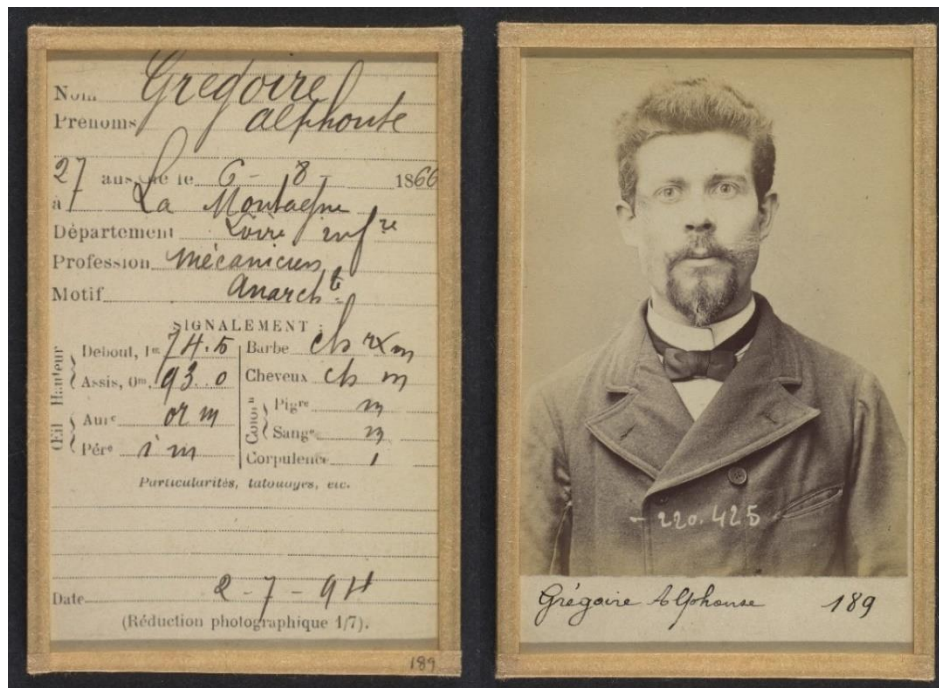 Nom Grégoire
Prénoms Alphonse
27 ans, né le 6-8- 1866
à La Montagne
Département Loire infre
Profession Mécanicien
Motif Anarchte
SIGNALEMENT :
Hauteur
Debout, 1m 74.5
Assis, 0m, 93.0
Œil
Aure or m
Pére i m
Barbe ch rx m
Cheveux ch m
Color
Pigre m
Sange m
Corpulence 1
Particularités, tatouages, etc.
Date 2-7-94
(Réduction photographique 1/7).
189
- 220.425
Grégoire Alphonse 189